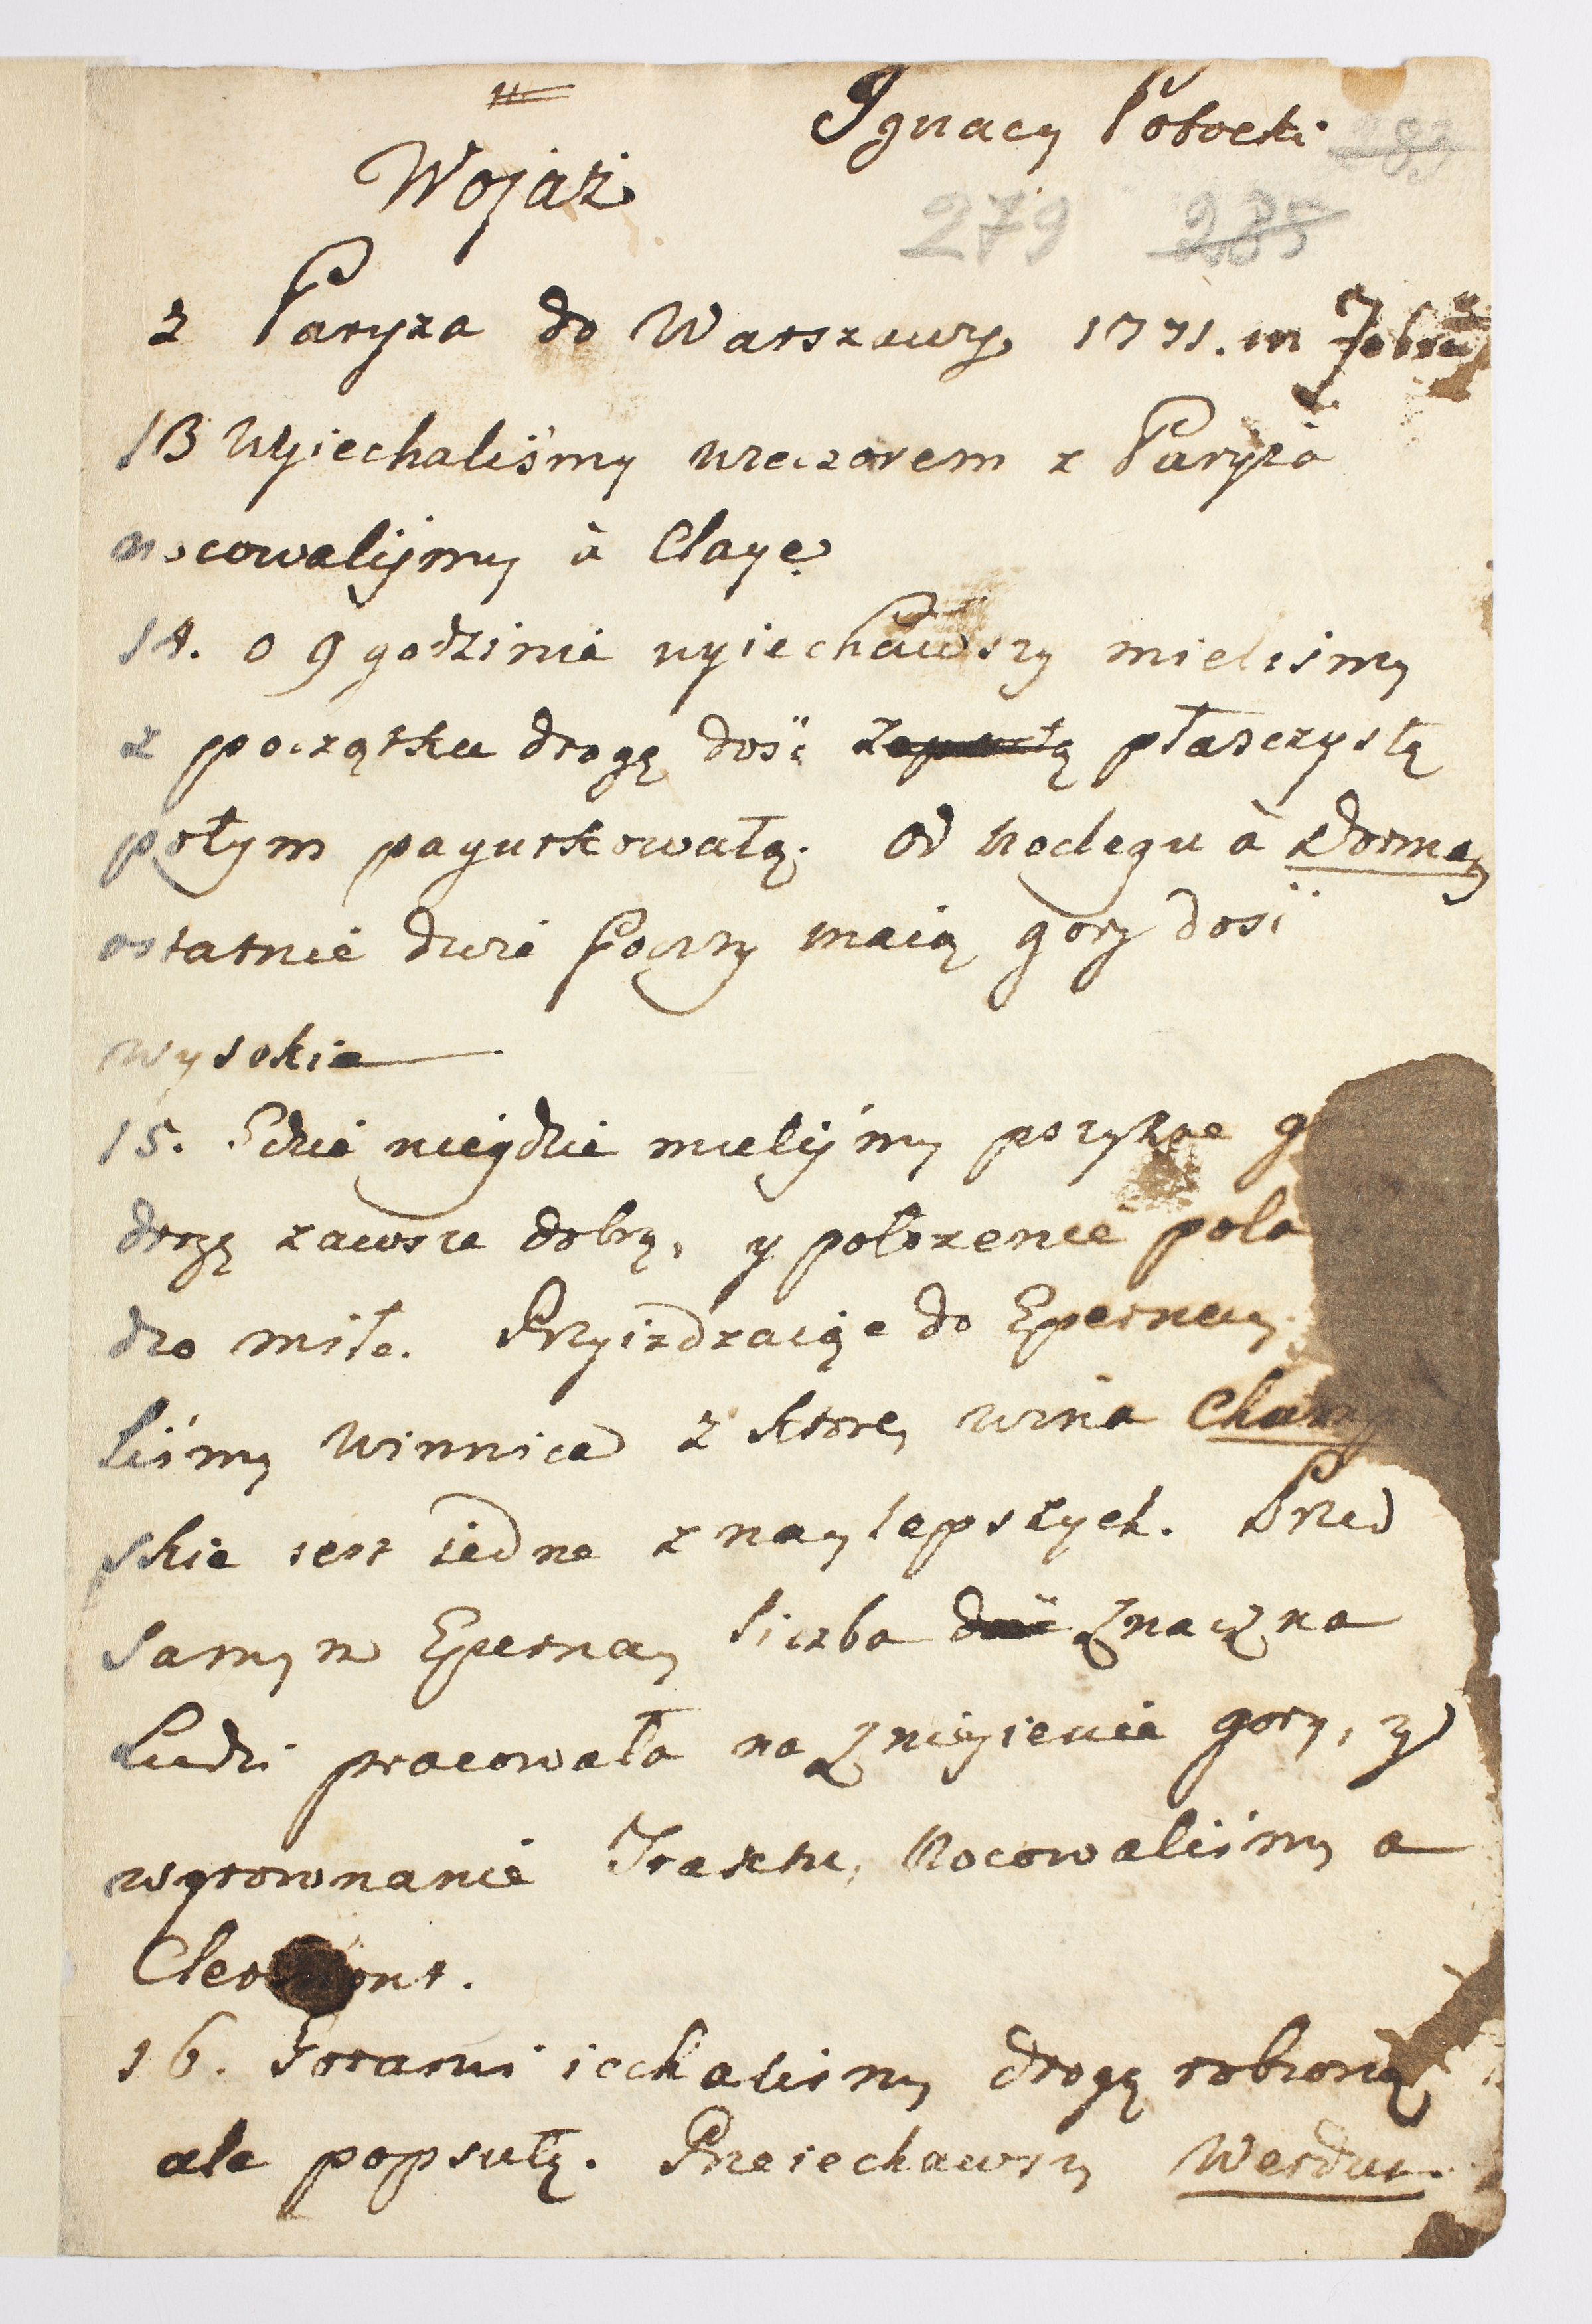 Ignacy Potocki 283
Wojaż
279 285
z Paryża do Warszawy 1771. in 7bru
13 wyiechaliśmy wieczorem z Paryża
nocowaliśmy à Claye
14. o 9 godzinie wyiechawszy mieliśmy
z początku drogę dość płasczystą
potym pagurkowatą. od noclegu à Dorman
ostatnie dwie Poczty maią gory dość
wysokie
15. Gdzie niegdzie mieliśmy przykre
drogę zawsze dobrą, y położenie pola
dzo miłe. Przyieżdzaiąc do Epernay
liśmy winnice z ktorey wina Champ
skie iest iedne z naylepszych. Przed
samym Epernay liczba dość znaczna
Ludzi pracowała na zniżenie gory, y
wyrownanie Traktu, Nocowaliśmy a
Clermont.
16. Gorami iechaliśmy drogą robioną
ale popsutą. Przeiechawszy Werdun.